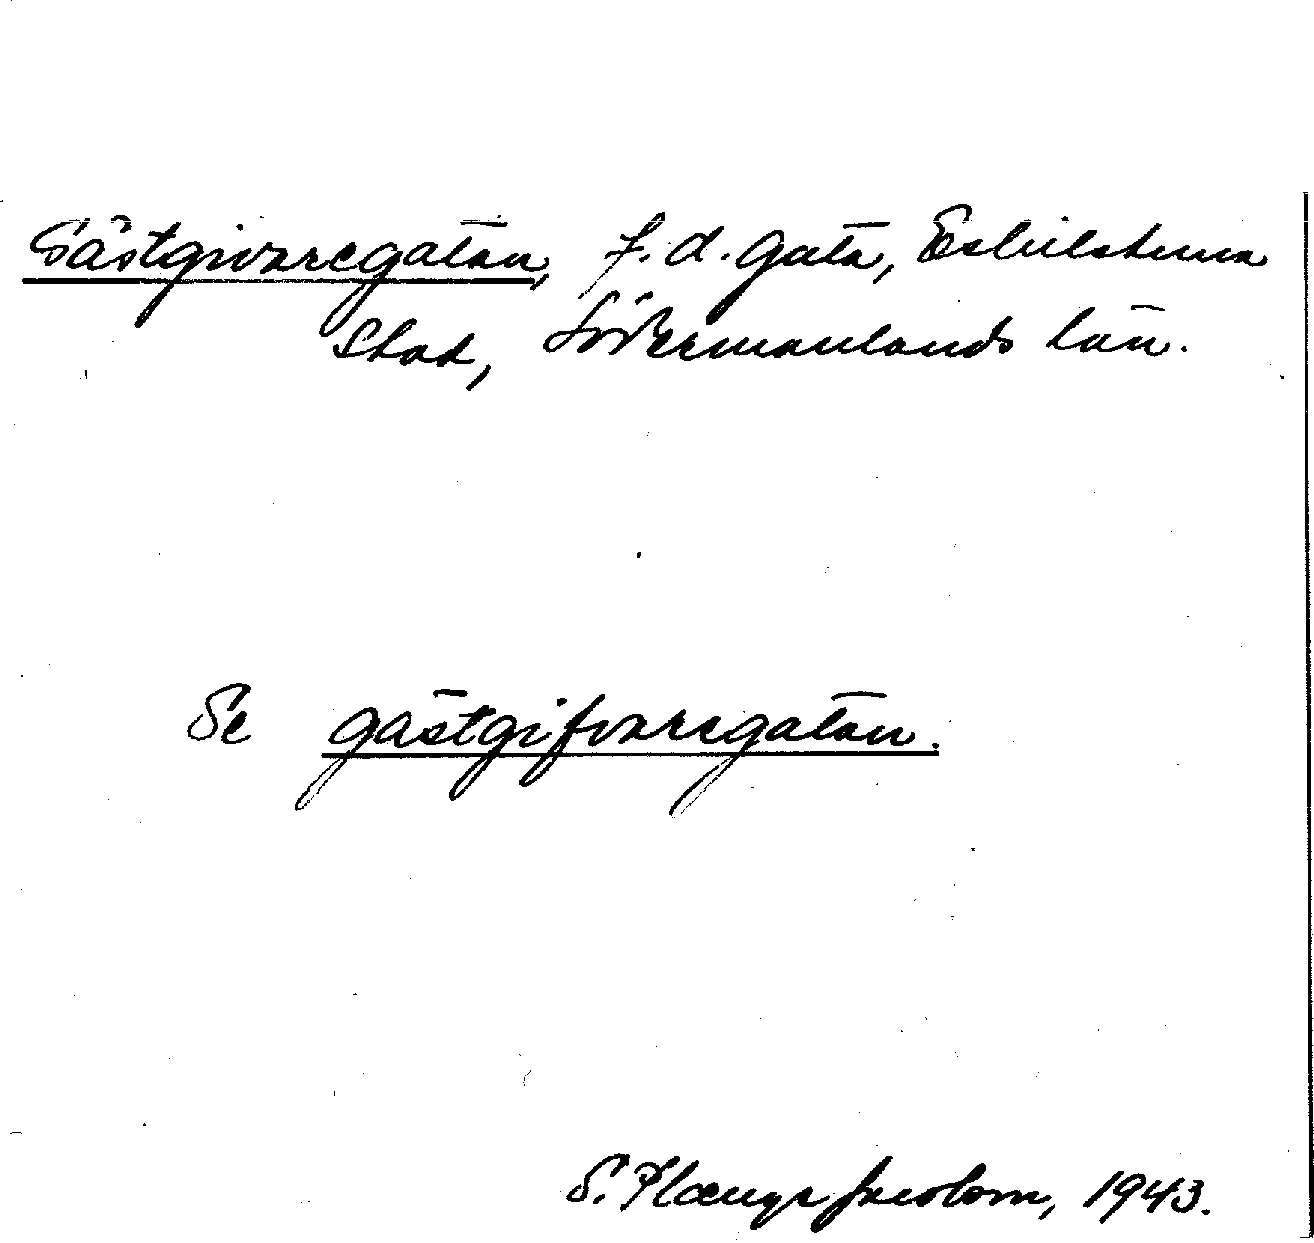 Gästgivaregatan, f.d. gata, Eskilstuna
stad, Södermanlands län.
Se Gästgifvaregatan.
S. 1943.